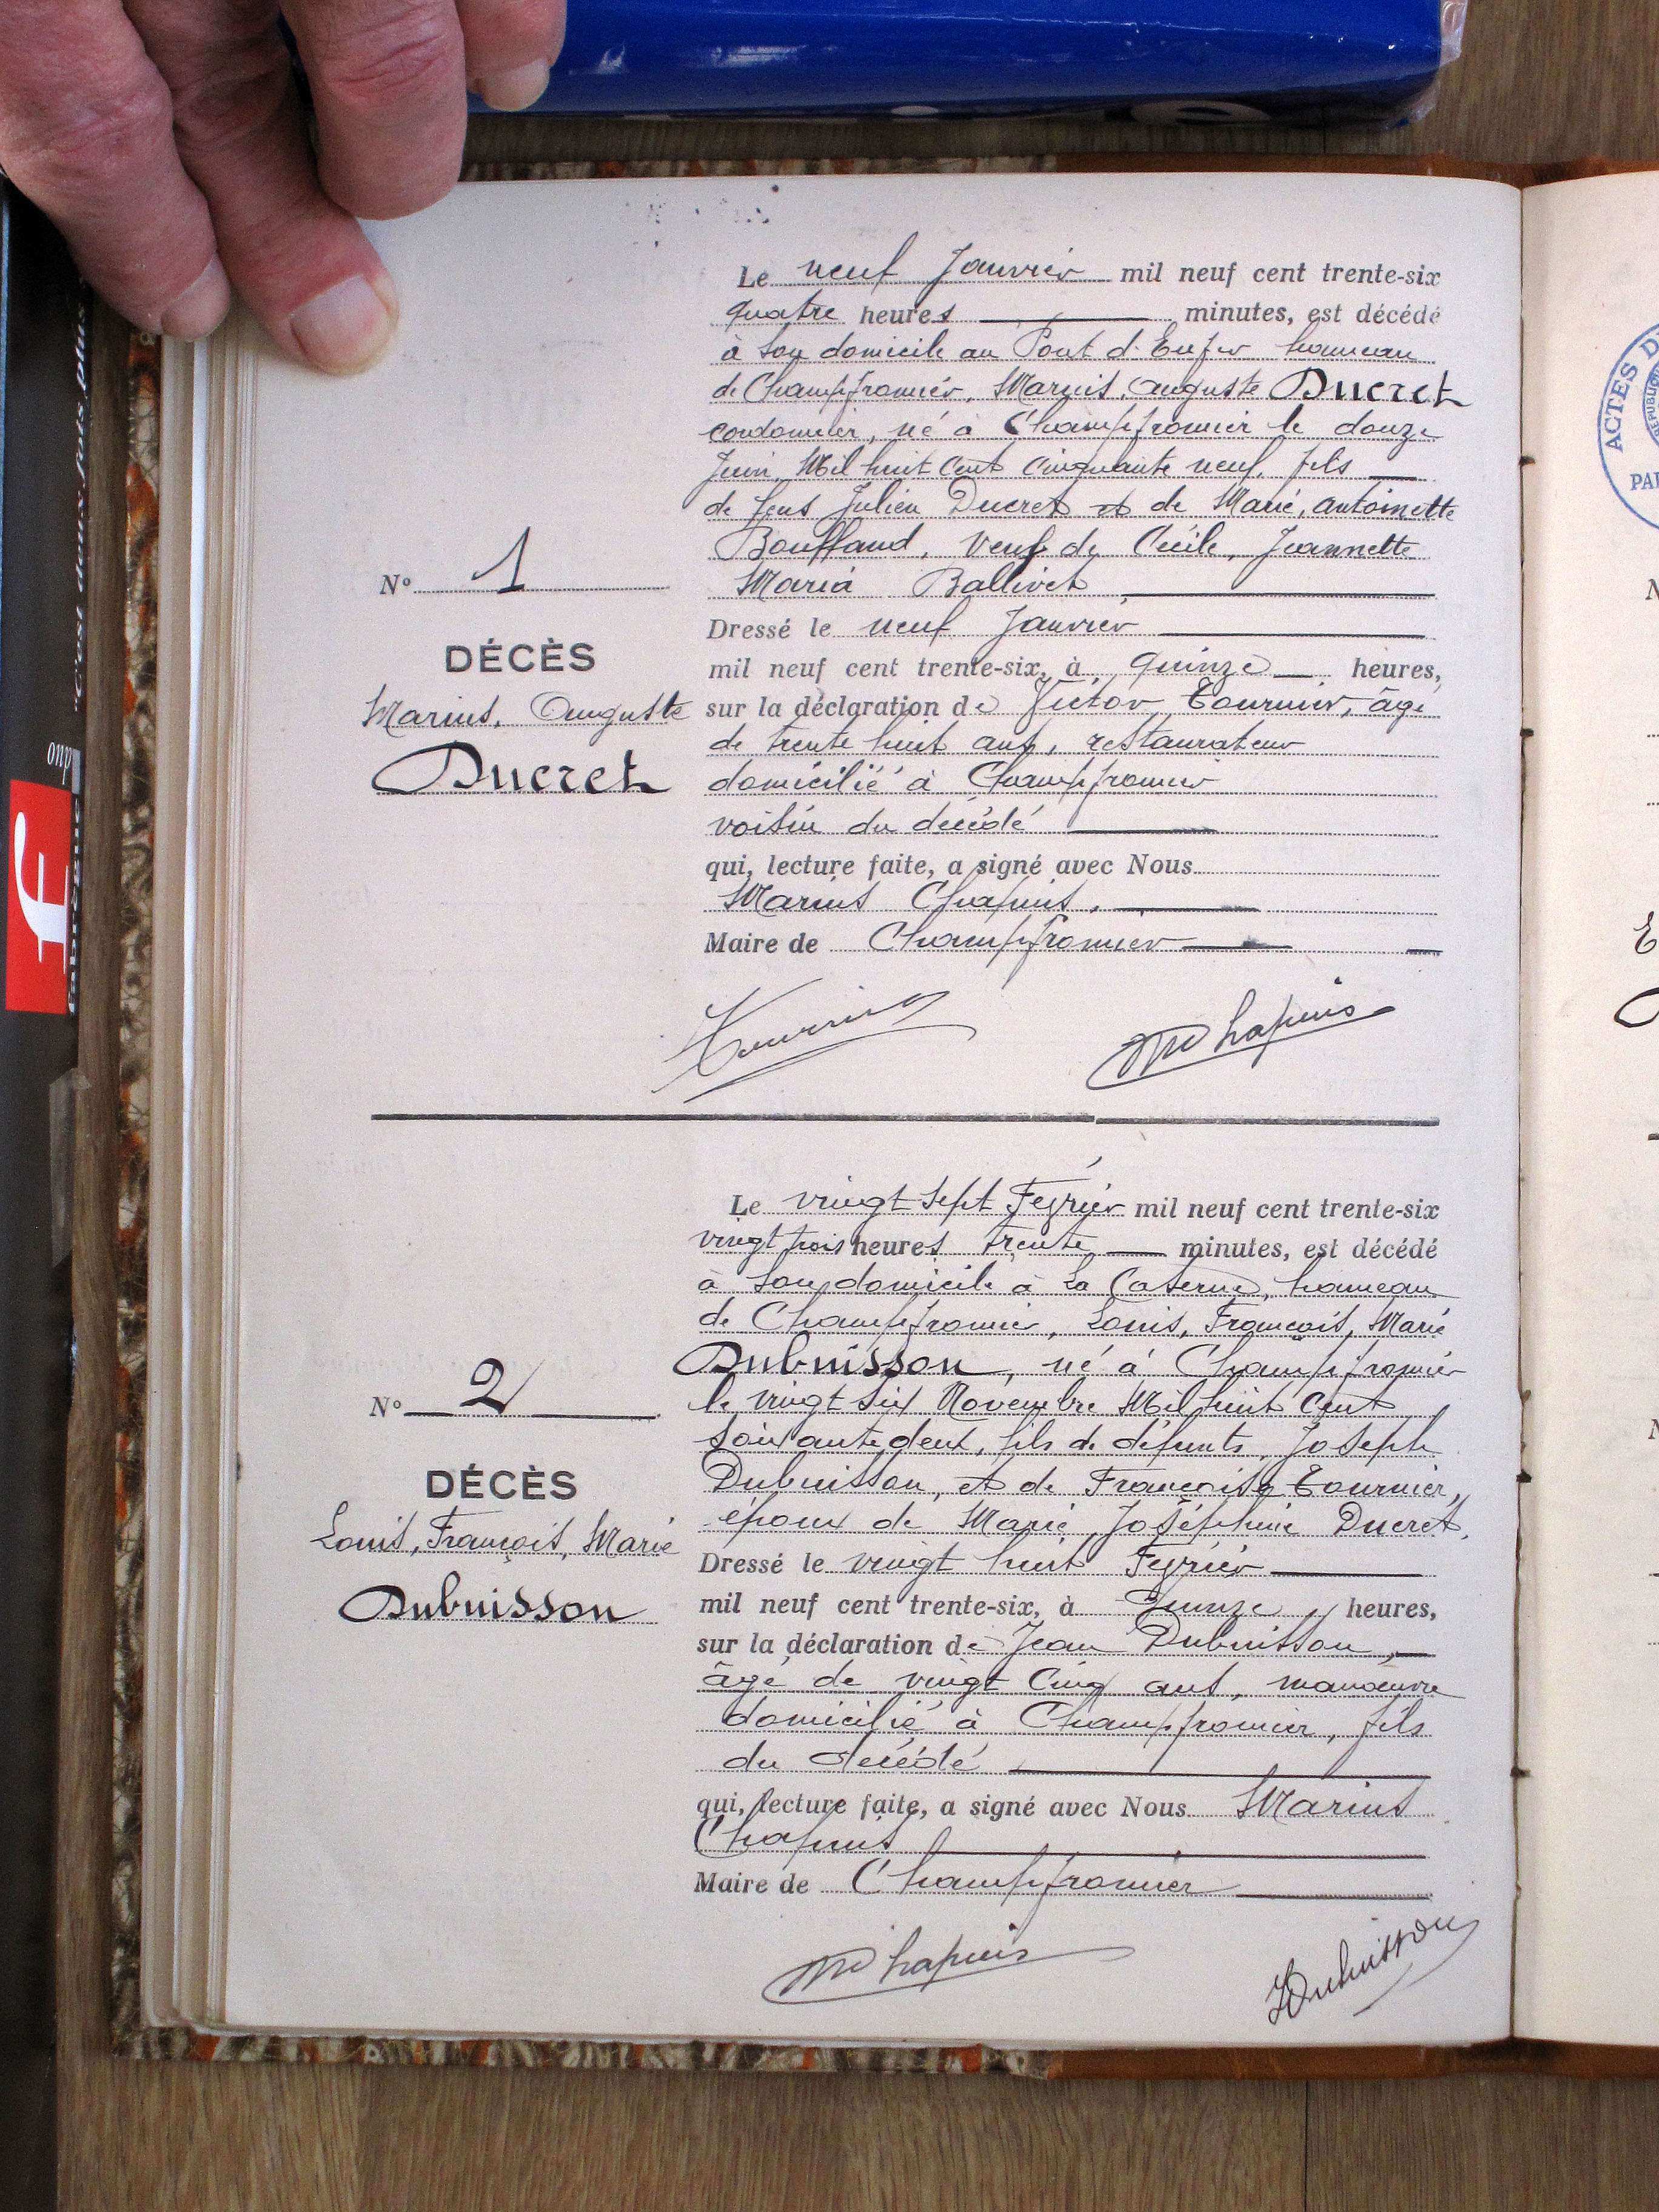 Le neuf Janvier mil neuf cent trente-six
quatre heures minutes, est décédé
à son domicile au Pont d'Enfer hameau
de Champfromier, Marius, Auguste Ducret
cordonnier, né à Champfromier le douze
Juin Mil huit Cent Cinquante neuf, fils
de feus Julien Ducret et de Marie, antoinette
Bouffand, Veuf de Cécile, Jeannette
Maria Ballivet
Nº 1
DÉCÈS
Marius, Auguste
Ducret
Dressé le neuf Janvier
mil neuf cent trente-six, à quinze heures,
sur la déclaration de Victor Tournier, âgé
de trente huit ans, restaurateur
domicilié à Champfromier
voisin du décédé
qui, lecture faite, a signé avec Nous
Marius Chapuis,
Maire de Champfromier
Tournier
M Chapuis
Le vingt sept Février mil neuf cent trente-six
vingt trois heures trente minutes, est décédé
à son domicile à La Caserne, hameau
de Champfromier, Louis, François, Marie
Dubuisson, né à Champfromier
le vingt six Novembre Mil huit Cent
Soixante deux, fils de défunts, Joseph
Dubuisson, et de Françoise Tournier,
époux de Marie Joséphine Ducret,
Nº 2
DÉCÈS
Louis, François, Marie
Dubuisson
Dressé le vingt huit Février
mil neuf cent trente-six, à Quinze heures,
sur la déclaration de Jean Dubuisson,
âgé de vingt Cinq ans, manoeuvre
domicilié à Champfromier, fils
du décédé
qui, lecture faite, a signé avec Nous Marius
Chapuis
Maire de Champfromier
M Chapuis
JDubuisson
ACTES D
PA